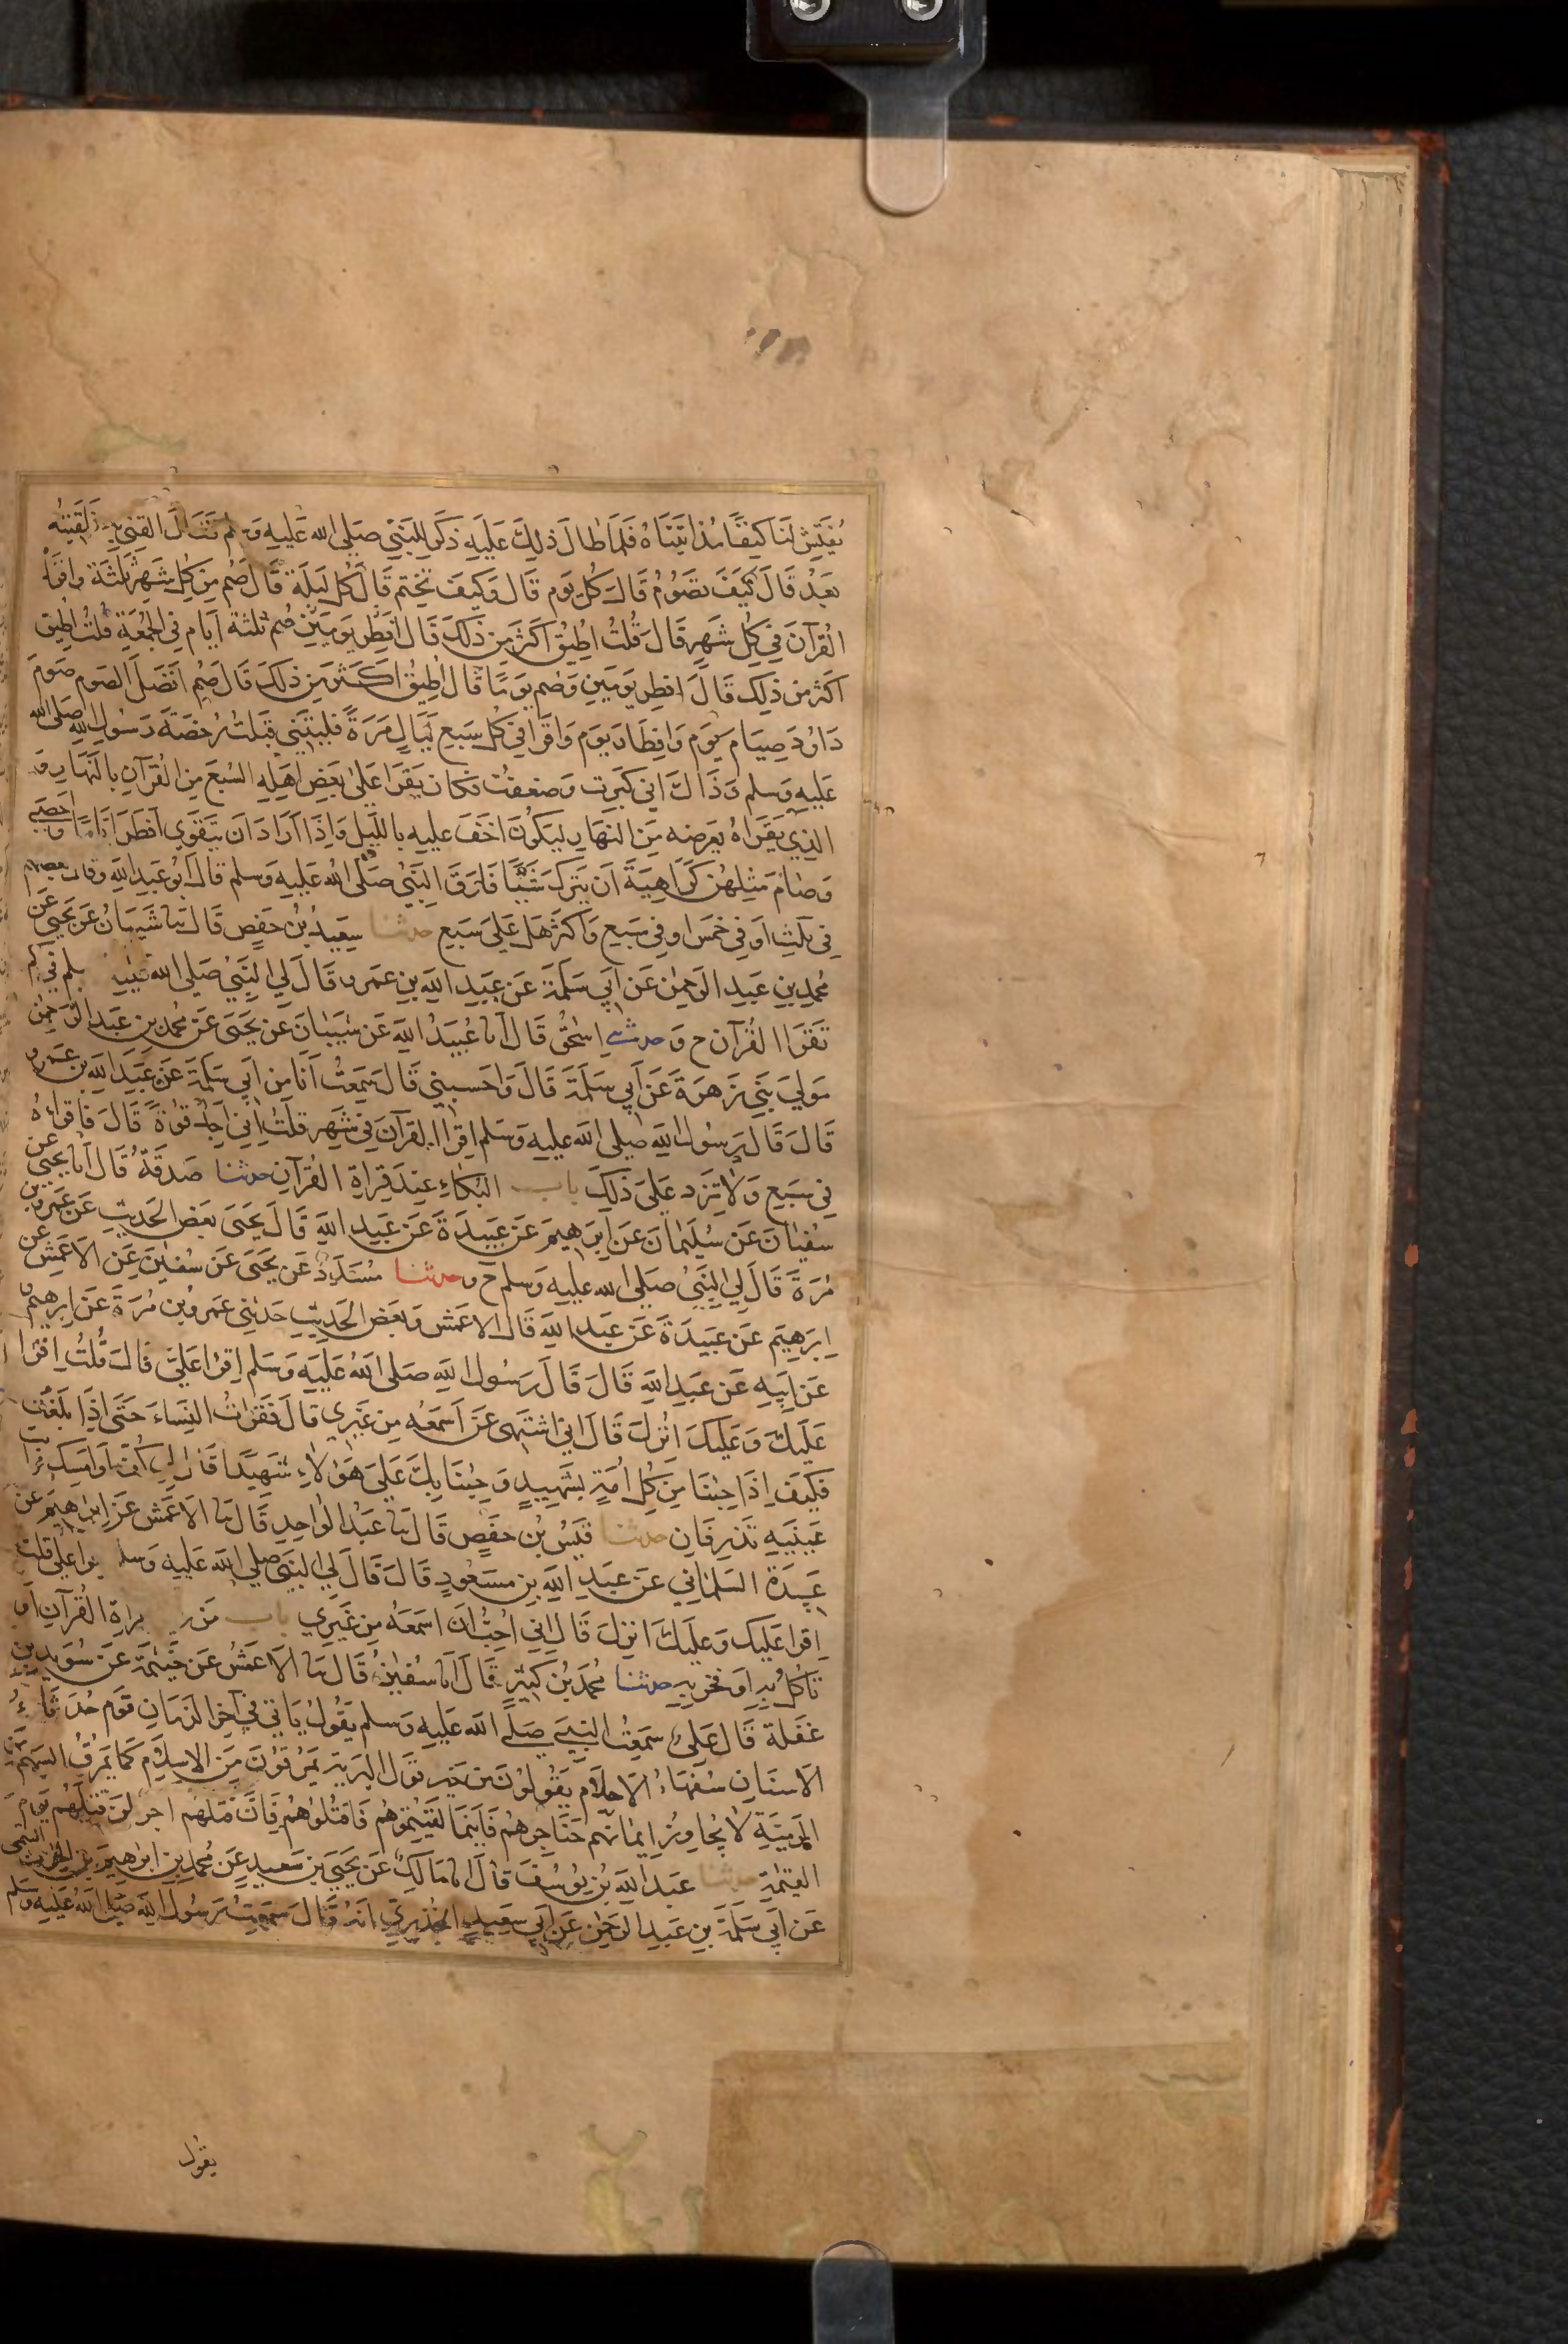 يُفَتِّش لَنَا كَنَفًا مُذ اَتَيْنَاهُ فَلَمَّا طَالَ ذٰلِكَ عَلَيْهِ ذَكَرَ لِلنَّبِيِّ صَلى الله عَليهِ وَسلم فَقَالَ القِنِي بِهِ فَلَقِيتُه
بَعْدُ قَالَ كَيْفَ تَصُوْمُ قَالَ كُلَّ يَوْمٍ قَالَ وَكَيفَ تَخْتِم قَالَ كُلَّ لَيلَةٍ قَالَ صُم مِن كُلِّ شَهرٍ ثَلٰثَةً وَاقرَا
القُرآنَ فِي كُلِّ شَهرٍ قَالَ قُلتُ اُطِيقُ اكثَرَ مِن ذَلكَ قَالَ افطِر يَومَينِ صُم ثلٰثة ايّام فِي الجُمُعَةِ قُلتُ اُطِيق
اكثر من ذٰلِك قَالَ افطِر يَومَينِ وَصُم يَومًا قَالَ اُطِيقُ اكثرَ مِن ذٰلكَ قَال صُم افضَلَ الصَوم صَومَ
دَاوُدَ صِيَامَ يَومٍ وَافطَارَ يَومٍ وَاقرَا فِي كُلِّ سَبعِ لَيَالٍ مَرَةً فَليتَنِي قَبِلتُ رُخصَةَ رَسُولِ اللهِ صَلى الله
عَليهِ وَسلم وَذَاكَ اني كَبِرت وَضَعُفت فكَان يَقرَا عَلىٰ بَعضِ اَهلِهِ السُبعَ مِنَ القُرآنِ بِالنَّهَارِ وَ
الذِي يَقرَاهُ يَعرِضه مِنَ النهَارِ لِيَكُونَ اخَفَ عَليهِ بِالليلِ وَاِذَا ارَادَ ان يَتَقَوّى افطَرَ ايَّامًا وَاحصىٰ
وَصَامَ مِثلَهُنَّ كَرَاهِيَةَ ان يَترُكَ شَيئًا فَارَقَ النَّبِيَّ صَلى الله عَليهِ وَسلم قالَ ابُو عَبدِ اللهِ وَقَالَ بعضهم
فِي ثَلٰثٍ اَو فِي خَمسٍ او فِي سَبعٍ وَاكثَرُهُم عَلىٰ سَبعٍ حدثنا سَعِيدُ بنُ حَفصٍ قَالَ ثنا شَيبَانُ عَن يَحيىٰ عَن
مُحَمدِ بنِ عَبدِ الرَحمٰن عَن ابِي سَلَمَةَ عَن عَبدِ اللهِ بنِ عَمرو قَالَ لِي النَّبِيُّ صَلى الله عَليهِ وَسلم فِي كم
تَقرَا القُرآن ح وَحدثني اسْحٰق قَالَ انا عُبَيدُ اللهِ عَن شَيبَانَ عَن يَحيىَ عَن مُحمد بنِ عَبدِ الرَّحمٰن
مَولىٰ بَنِي زهرَةَ عَن ابِي سَلَمَةَ قَالَ وَاحسِبُنِي قَالَ سَمِعتُ انَا مِن ابِي سَلَمَةَ عَن عَبدِ الله بن عَمرو
قَالَ قَالَ رَسُولُ اللهِ صَلى الله عَليهِ وَسَلم اِقرَا القُرآنَ فِي شَهرٍ قُلتُ اِني اَجِدُ قُوّةً قَالَ فَاقراهُ
فِي سَبعٍ وَلاَ تَزِد عَلىٰ ذٰلِكَ باب البُكاءِ عِندَ قِراةِ القُرآنِ حدثنا صَدَقَةُ قَالَ انا يَحيىٰ عَن
سُفيٰانَ عَن سُلَيمانَ عَن اِبرٰهِيمَ عَن عَبِيدَةَ عَن عَبدِ اللهِ قَالَ يَحيىٰ بَعضُ الحَدِيثِ عَن عَمرِو بنِ
مُرَةَ قَالَ لِي النَّبِيُّ صَلى الله عَليهِ وَسلم ح وحدثنا مُسَدَّدٌ عَن يَحيىٰ عَن سُفيٰنَ عَنِ الاَعمَش عَن
اِبرٰهِيمَ عَن عَبِيدَةَ عَن عَبدِ اللهِ قَالَ الاَعمَش وَبَعضُ الحَدِيثِ حَدثنِي عَمرو بن مُرَةَ عَن ابرٰهِيم
عَن اَبِيهِ عَن عَبدِ اللهِ قَالَ قَالَ رَسُولُ اللهِ صَلى اللهُ عَلَيهِ وَسَلم اِقرَا عَلَيَّ قَالَ قُلتُ اِقرَا
عَلَيكَ وَعَلَيكَ انْزِلَ قَالَ اِني اشتَهى عَن اَسمَعُه مِن غَيرِي قَالَ فَقَراتُ النِّسَاءَ حَتّىٰ اِذَا بَلَغتُ
فَكَيفَ اِذَا جِئنَا مِن كُلِّ اُمَّةٍ بِشَهِيدٍ وَجِئنَا بِكَ عَلىٰ هَؤُلاَءِ شَهِيدًا قَالَ لِي كُف اَو امسِك فرات
عَينَيهِ تَذرِفَانِ حدثنا قَيسُ بنُ حَفصٍ قَالَ ثنا عَبدُ الوَاحِدِ قَالَ ثنا الاَعمَش عَن اِبرٰهِيمَ عَن
عَبِيدَةَ السَلمَانِي عَن عَبدِ اللهِ بنِ مسَعُودٍ قَالَ قَالَ لِي النَّبِيُّ صَلى الله عَليهِ وَسلم اقرا عَلَيَّ قلت
اِقرا عَلَيك وَعَلَيكَ انزِلَ قَال اِني اُحِبُّ اَن اَسمَعَهُ مِن غَيرِي باب مَن راءٰ بقراةِ القُرآنِ اَو
تَاكلَ بِهِ اَو فخَرَ بِهِ حدثنا مُحمدُ بنُ كَثِيرٍ قَالَ انا سُفيٰنُ قَالَ ثنا الاَعمَشُ عَن خَيثَمَةَ عَن سُوَيدِ بنِ
غَفَلَةَ قَالَ عَلِيٌّ سَمِعتُ النَّبِيَّ صَلى الله عَليهِ وَسلم يَقُولُ يَاتي فِي آخِرِ الزمَانِ قَوم حُدَثَاءُ
الاَسنَانِ سُفَهَاءُ الاَحلاَمِ يَقُولُونَ مِن خَيرِ قَولِ البَرِيّةِ يَمرُقُونَ مِنَ الاِسلاَمِ كَمَا يَمرُقُ السَهمُ مِنَ
الرَمِيّةِ لاَ يُجَاوِزُ اِيمَانُهُم حَنَاجِرهُم فَاَينَمَا لَقِيتُمُوهُم فَاقتُلُوهُم فَاِنَّ قتلَهُم اجر لمَن قَتَلَهُم يَومَ
القِيٰمةِ حدثنا عَبدُ اللهِ بنُ يُوسُفَ قَالَ انا مَالِكٌ عَن يَحيىٰ بنِ سَعِيدٍ عَن مُحمدِ بنِ ابرٰهِيمَ بنِ الحٰرِث التيمى
عَن اَبِي سَلَمَةَ بنِ عَبدِ الرَحمٰن عَن اَبِي سَعِيدٍ الخُدرِيِّ انهُ قَالَ سَمِعتُ رَسُولَ اللهِ صَلى اللهُ عَليهِ وَسَلم
يقول